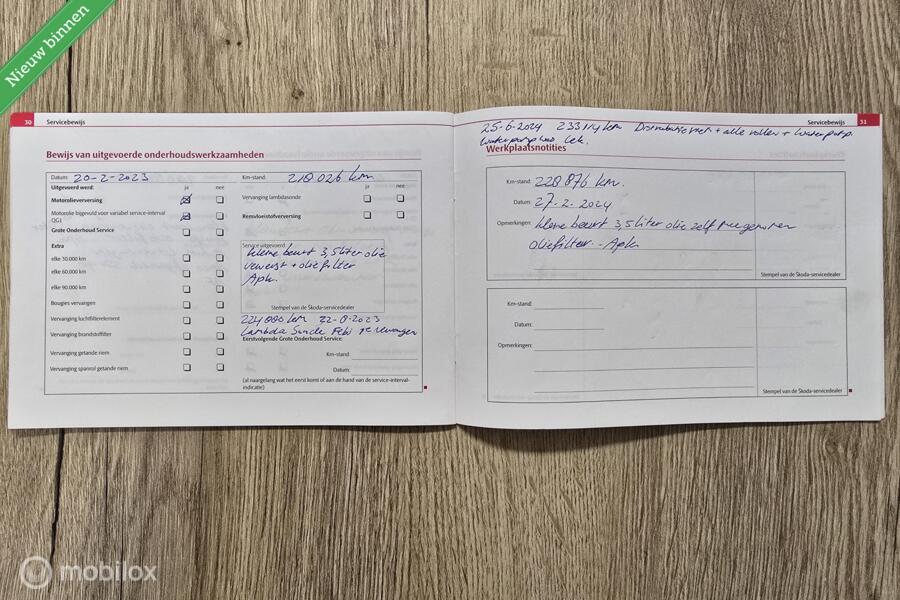 Nieuw binnen
30 Servicebewijs
Bewijs van uitgevoerde onderhoudswerkzaamheden
Datum: 20-2-2023 Km-stand: 218026 km
Uitgevoerd werd: ja nee ja nee
Motorolieverversing
Motorolie bijgevuld voor variabel service-interval
QG)
Grote Onderhoud Service
Extra
elke 30.000 km
elke 60.000 km
elke 90.000 km
Bougies vervangen
Vervanging luchtfilterelement
Vervanging brandstoffilter
Vervanging getande riem
Vervanging spanrol getande riem
Vervanging lambdasonde
Remvloeistofverversing
Service uitgevoerd
kleine beurt 3,5 liter olie
ververst + oliefilter
Apk.
Stempel van de Škoda-servicedealer
224000 km 22-8-2023
Lambda Sonde Febi vervangen
Eerstvolgende Grote Onderhoud Service:
Km-stand:
Datum:
(al naargelang wat het eerst komt of aan de hand van de service-interval-
indicatie)
Servicebewijs 31
25-6-2024 233114 km Distributieriem + alle rollen + waterpomp.
lek.
Werkplaatsnotities
Km-stand: 228876 km.
Datum: 27-2-2024
Opmerkingen: kleine beurt 3,5 liter olie zelf meegenomen
oliefilter - Apk
Stempel van de Škoda-servicedealer
Km-stand:
Datum:
Opmerkingen:
Stempel van de Škoda-servicedealer
mobilox